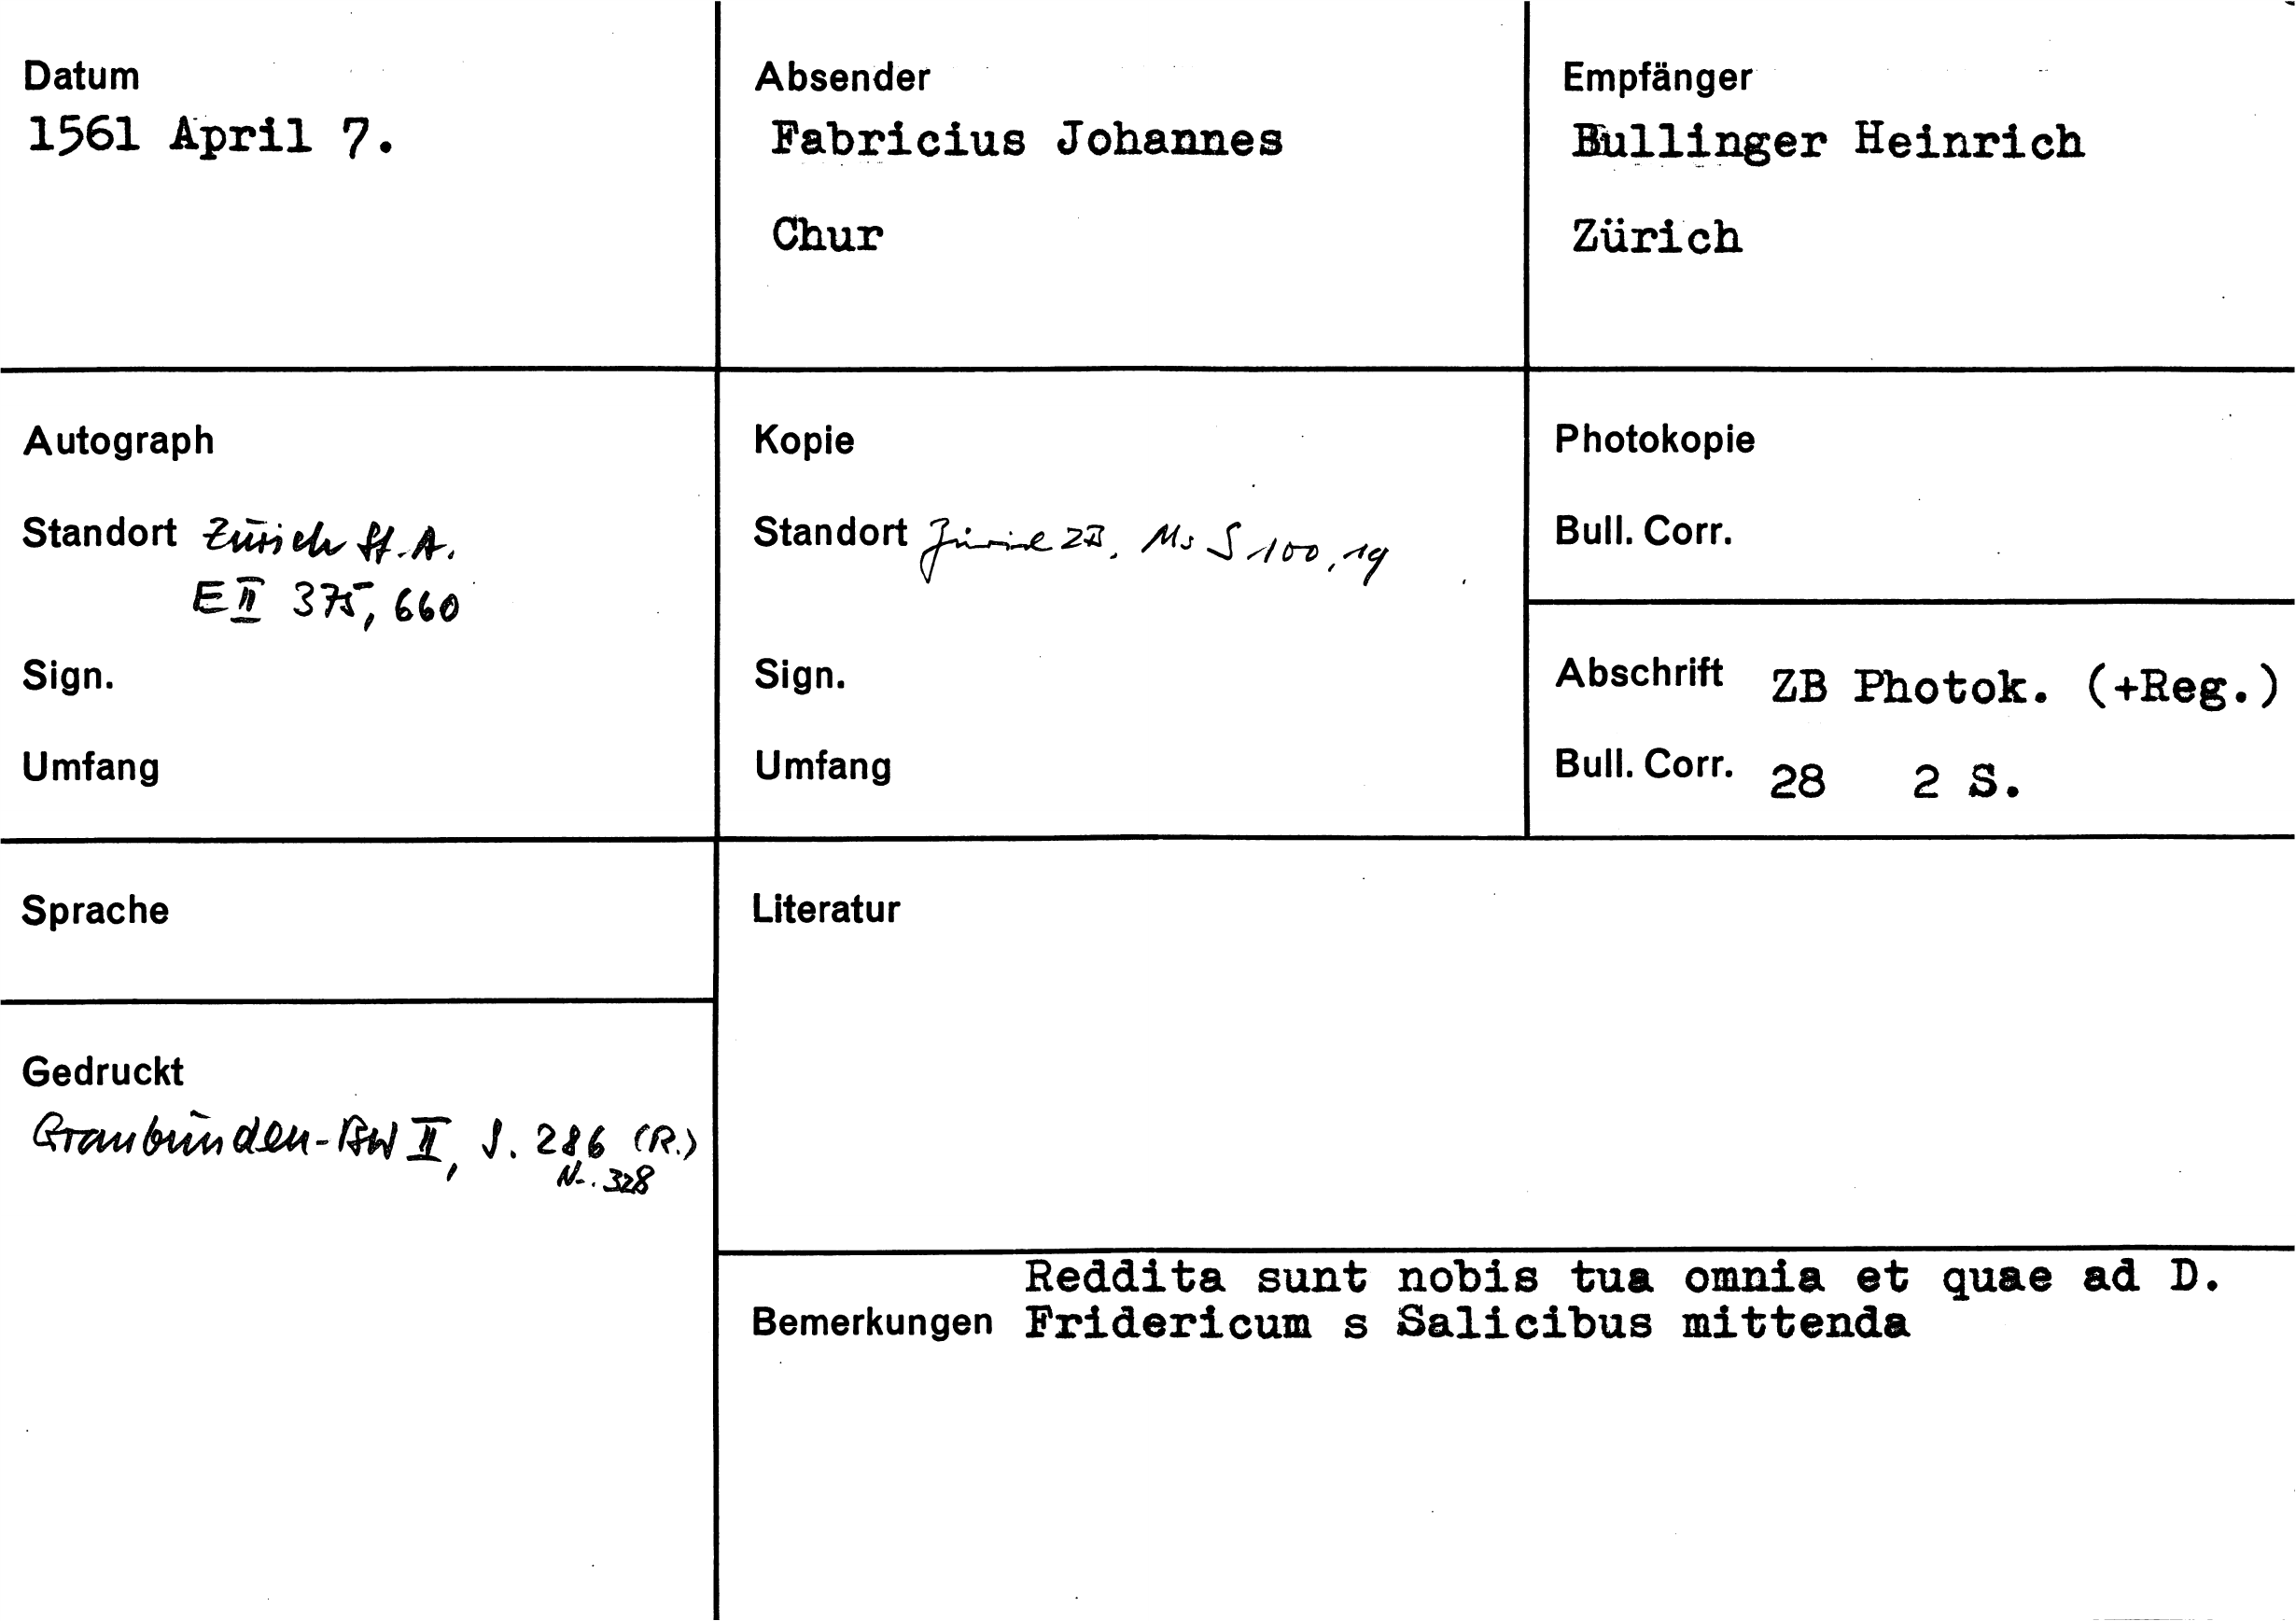 Datum
1561 April 7.
Absender
Fabricius Johannes
Chur
Empfänger
Bullinger Heinrich
Zürich
Autograph
Standort Zürich St.A.
E II 375, 660
Sign.
Umfang
Kopie
Standort Zürich ZB, Ms S 100, 19
Sign.
Umfang
Photokopie
Bull. Corr.
Abschrift ZB Photok. (+Reg.)
Bull. Corr. 28 2 S.
Sprache
Gedruckt
Graubünden-BW II, S. 286 (R.)
Nr. 328
Literatur
Reddita sunt nobis tua omnia et quae ad D.
Bemerkungen Fridericum s Salicibus mittenda